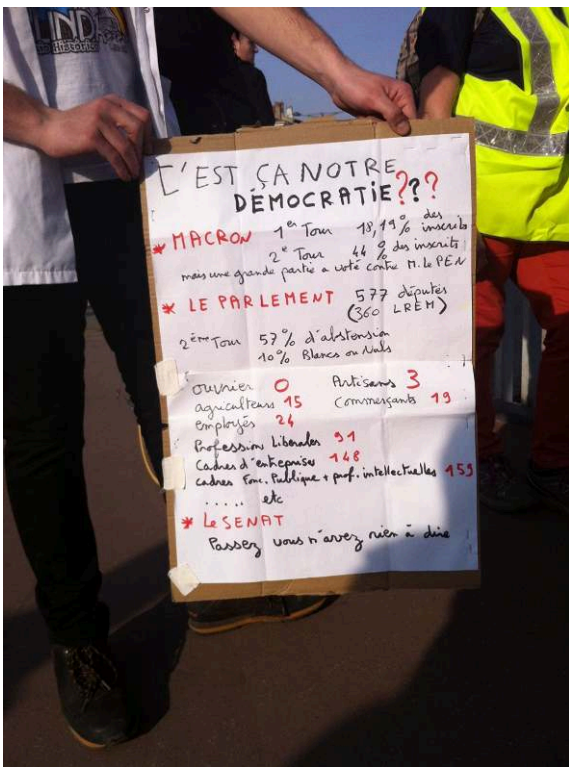 C'EST ÇA NOTRE
DÉMOCRATIE???
* MACRON 1er Tour 18,19% des inscrits
2e Tour 44% des inscrits
mais une grande partie a voté contre M. Le PEN
* LE PARLEMENT 577 députés
(360 LREM)
2ème Tour 57% d'abstension
10% Blancs ou Nuls
ouvrier 0 Artisans 3
agriculteurs 15 Commerçants 19
employés 24
Profession Libérales 91
Cadres d'entreprise 148
cadres Fonc. Publique + prof. intellectuelles 159
..... etc
* Le SENAT
Passez vous n'avez rien à dire